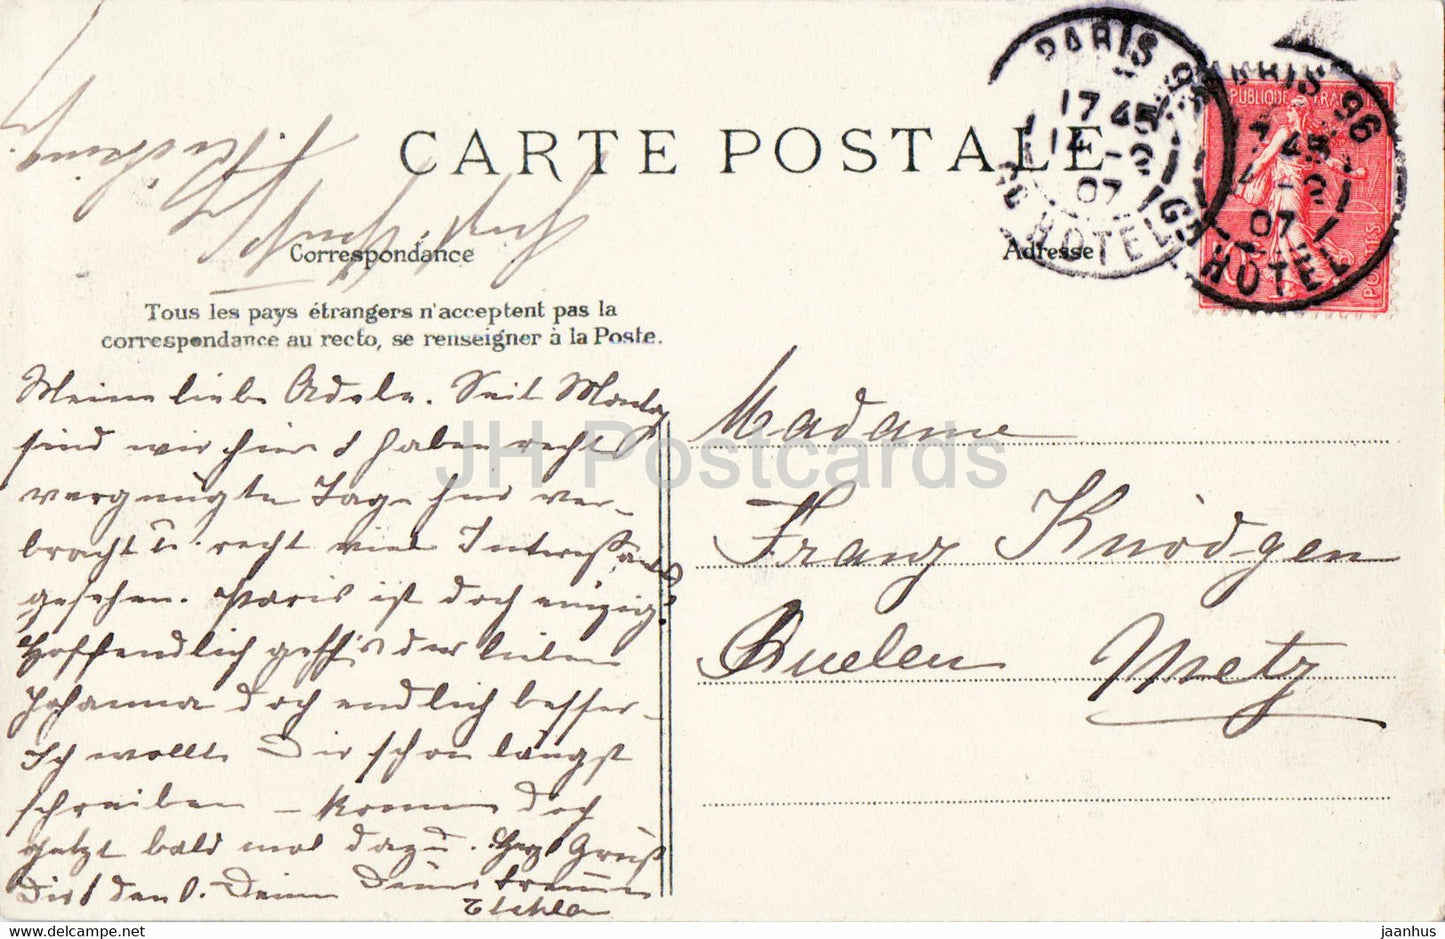 CARTE POSTALE
Correspondance
Adresse
Tous les pays étrangers n'acceptent pas la
correspondance au recto, se renseigner à la Poste.
PARIS 96
17 45
14 -
07
HOTEL
PARIS 96
45
07
HOTEL
RÉPUBLIQUE FRANÇAISE
POSTES
Meine liebe Adele. Seit Montag
sind wir hier & haben recht
vergnügte Tage hier ver-
bracht u. recht viel Interessantes
gesehen. Paris ist doch einzig.
Hoffentlich geht's der lieben
Johanna doch endlich besser -
Ich wollte Dir schon längst
schreiben - komme doch
jetzt bald mal dazu. Herzl Grüße
Dir & den
Madame
Franz Knödgen
Queulen Metz
JH Postcards
www.jhpostcards.com
jaanhus